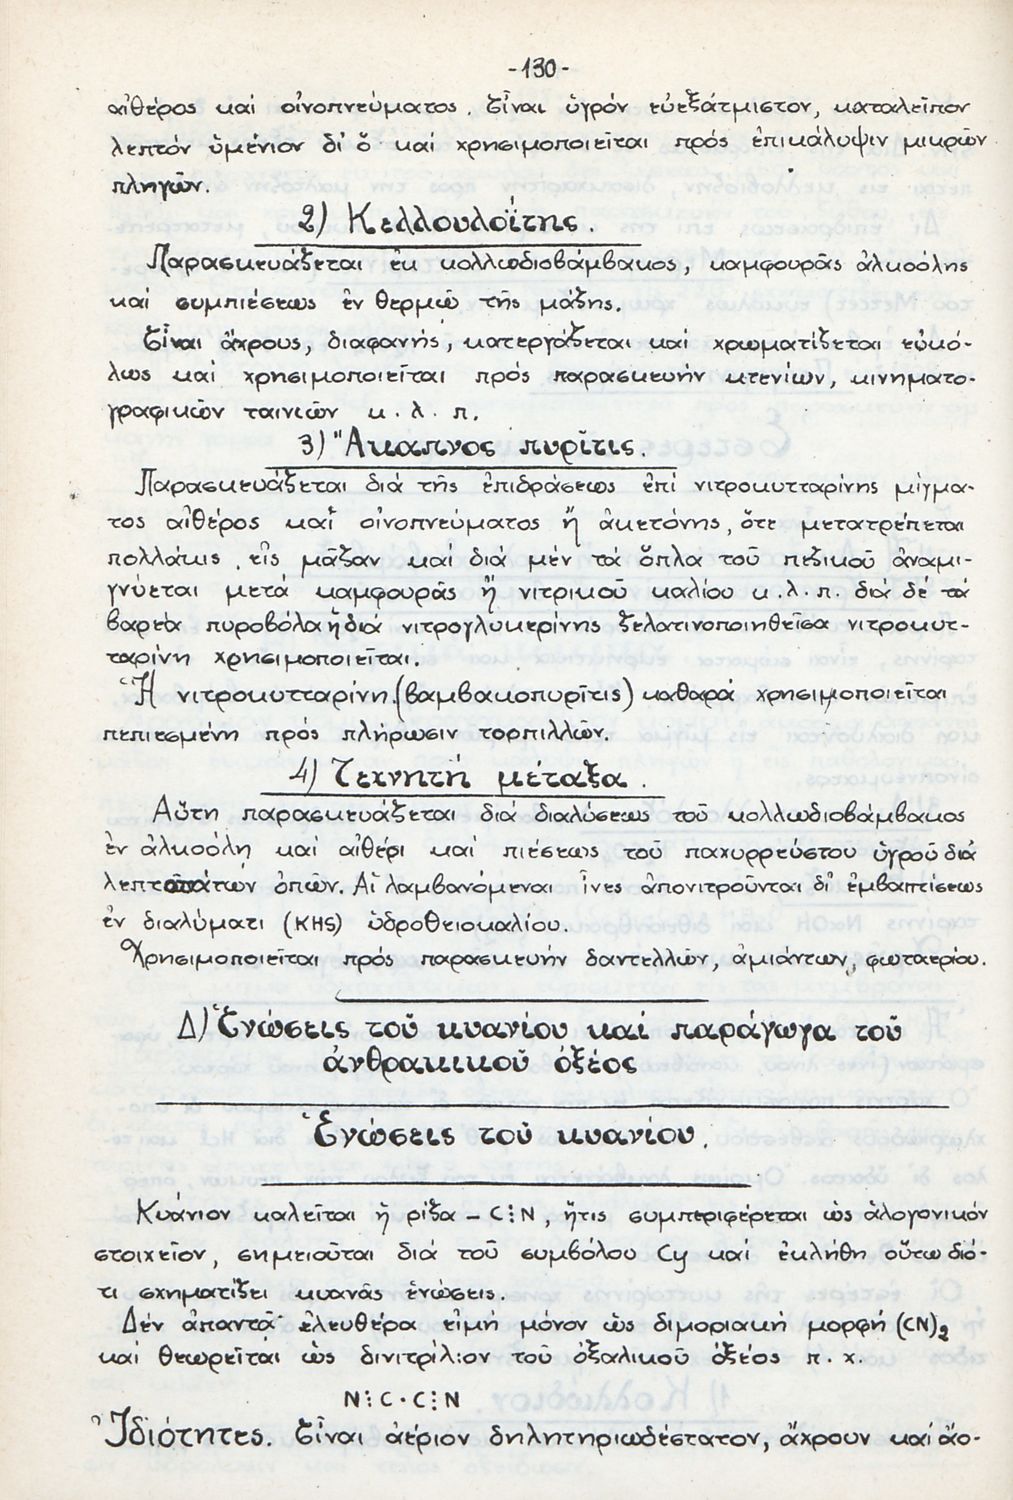 -130-
αἰθέρος καί οἰνοπνεύματος. Εἶναι ὑγρόν εὐεξάτμιστον, καταλεῖπον
λεπτόν ὑμένιον δι' ὅ καί χρησιμοποιεῖται πρός ἐπικάλυψιν μικρῶν
πληγῶν.
2) Κελλουλοΐτης.
Παρασκευάζεται ἐκ κολλωδιοβάμβακος, καμφουρᾶς ἀλκοόλης
καί συμπιέσεως ἐν θερμῷ τῆς μάζης.
Εἶναι ἄχρους, διαφανής, κατεργάζεται καί χρωματίζεται εὐκό-
λως καί χρησιμοποιεῖται πρός παρασκευήν κτενίων, κινηματο-
γραφικῶν ταινιῶν κ.λ.π.
3) Ἄκαπνος πυρῖτις.
Παρασκευάζεται διά τῆς ἐπιδράσεως ἐπί νιτροκυτταρίνης μίγμα-
τος αἰθέρος καί οἰνοπνεύματος ἤ ἀκετόνης, ὅτε μετατρέπεται
πολλάκις εἰς μᾶζαν καί διά μέν τά ὅπλα τοῦ πεζικοῦ ἀναμι-
γνύεται μετά καμφουρᾶς ἤ νιτρικοῦ καλίου κ.λ.π. διά δέ τά
βαρέα πυροβόλα ἤ διά νιτρογλυκερίνης ζελατινοποιηθεῖσα νιτροκυτ-
ταρίνη χρησιμοποιεῖται.
Ἡ νιτροκυτταρίνη (βαμβακοπυρῖτις) καθαρά χρησιμοποιεῖται
πεπιεσμένη πρός πλήρωσιν τορπιλλῶν.
4) Τεχνητή μέταξα.
Αὕτη παρασκευάζεται διά διαλύσεως τοῦ κολλωδιοβάμβακος
ἐν ἀλκοόλῃ καί αἰθέρι καί πιέσεως τοῦ παχυρρεύστου ὑγροῦ διά
λεπτοτάτων ὀπῶν. Αἱ λαμβανόμεναι ἶνες ἀπονιτροῦνται δι' ἐμβαπτίσεως
ἐν διαλύματι (KHS) ὑδροθειοκαλίου.
Χρησιμοποιεῖται πρός παρασκευήν δαντελλῶν, ἀμιάντων, φωταερίου.
Δ) Ἑνώσεις τοῦ κυανίου καί παράγωγα τοῦ
ἀνθρακικοῦ ὀξέος
Ἑνώσεις τοῦ κυανίου.
Κυάνιον καλεῖται ἡ ρίζα – C⋮N, ἥτις συμπεριφέρεται ὡς ἁλογονικόν
στοιχεῖον, σημειοῦται διά τοῦ συμβόλου Cy καί ἐκλήθη οὕτω διό-
τι σχηματίζει κυανᾶς ἑνώσεις.
Δέν ἀπαντᾶ ἐλευθέρα εἰμή μόνον ὡς διμοριακή μορφή (CN)₂
καί θεωρεῖται ὡς δινιτρίλιον τοῦ ὀξαλικοῦ ὀξέος π.χ.
N⋮C·C⋮N
Ἰδιότητες. Εἶναι ἀέριον δηλητηριωδέστατον, ἄχρουν καί ἄο-